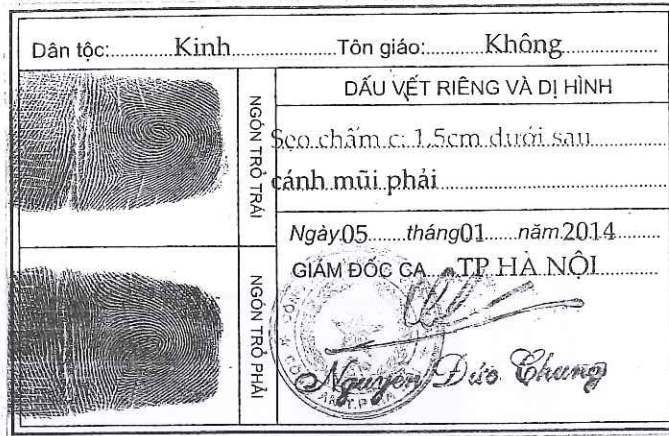 Dân tộc: Kinh Tôn giáo: Không
NGÓN TRỎ TRÁI
DẤU VẾT RIÊNG VÀ DỊ HÌNH
Sẹo chấm c: 1,5cm dưới sau
cánh mũi phải
Ngày 05 tháng 01 năm 2014
GIÁM ĐỐC CA TP HÀ NỘI
NGÓN TRỎ PHẢI
Nguyễn Đức Chung